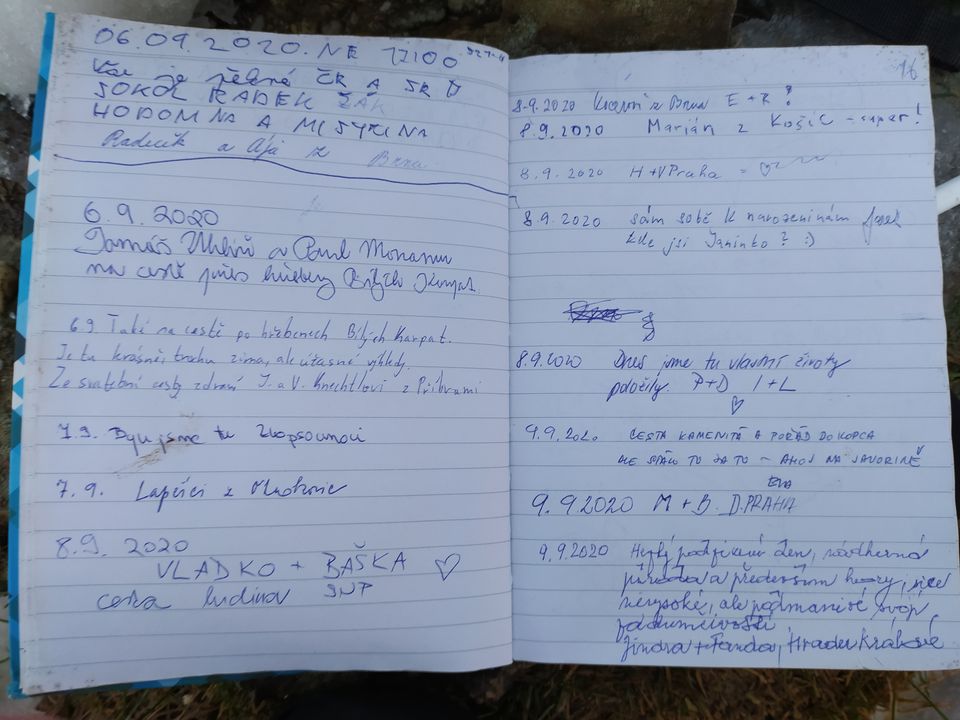 06.09.2020. NE 11100
ČR A SR
SOKOL RADEK ŽÁK
HODOMNA A MISTŘINA
Radecik a Ája z Brna
6.9.2020
Tomáš a Pavel
na cestě přes hřebeny Bílých Karpat.
6.9. Také na cestě po hřebenech Bílých Karpat.
Je tu krásně, trochu zima, ale úžasné výhledy.
Ze svatební cesty zdraví J. a V. Knechtlovi z Příbrami
7.9. jsme tu
7.9. z
8.9. 2020
VLADKO + BAŠKA ♡
cesta hrdinov SNP
16
8.9.2020 z Brna E+R
8.9.2020 Marián z Košic - super!
8.9.2020 H+V Praha = ♡
8.9.2020 sám sobě k narozeninám
kde jsi Janinko? :)
8.9.2020 Dnes jsme tu vlastní životy
položily. P+D I+L
♡
9.9.2020 CESTA KAMENITÁ A POŘÁD DO KOPCA
ALE STÁLO TO ZA TO - AHOJ NA JAVORINĚ
EVA
9.9.2020 M+B. D. PRAHA
9.9.2020 Hezký den, nádherná
příroda a především hory, sice
nevysoké, ale svojí
Jindra + Fanda, Hradec Králové